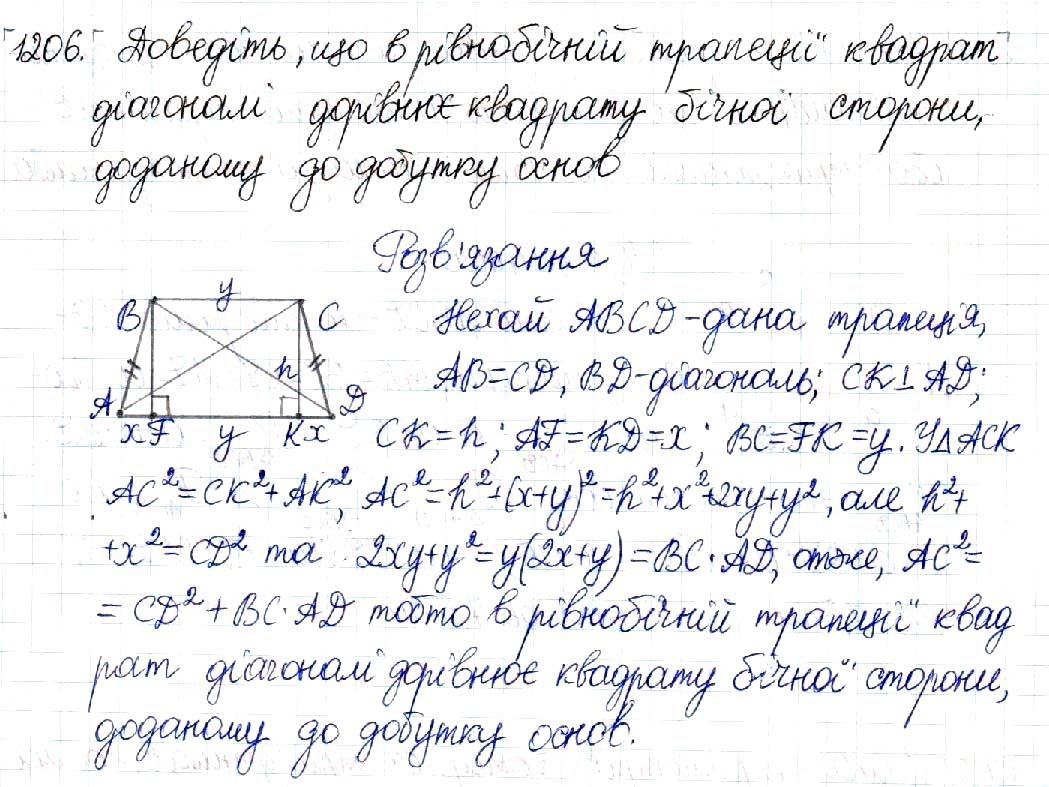 1206. Доведіть, що в рівнобічній трапеції квадрат
діагоналі дорівнює квадрату бічної сторони,
доданому до добутку основ
Розв'язання
y
B C Нехай ABCD - дана трапеція,
h AB=CD, BD-діагональ; CK⊥AD;
A D
x F y K x CK=h; AF=KD=x; BC=FK=y. У△ACK
AC²=CK²+AK², AC²=h²+(x+y)²=h²+x²+2xy+y², але h²+
+x²=CD² та 2xy+y²=y(2x+y)=BC·AD, отже, AC²=
=CD²+BC·AD тобто в рівнобічній трапеції квад
рат діагоналі дорівнює квадрату бічної сторони,
доданому до добутку основ.